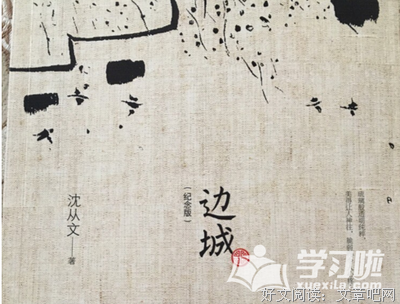 边城
（纪念版）
沈从文——著
学习啦
XUEXILA.COM
好文阅读： 文章吧网